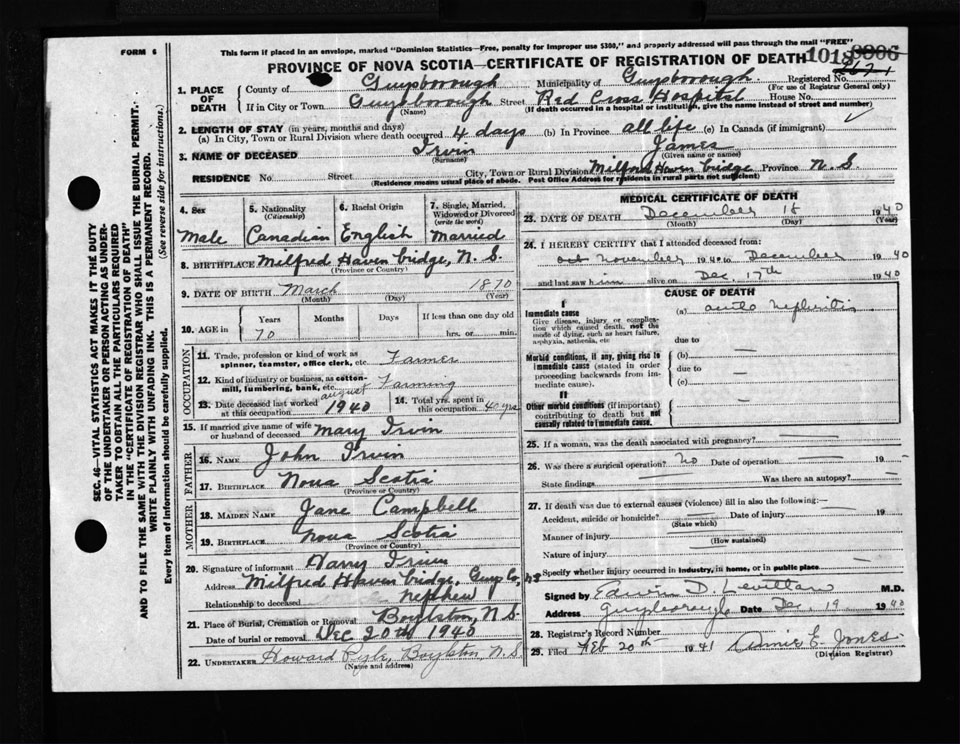 FORM 6
This form if placed in an envelope, marked "Dominion Statistics—Free, penalty for improper use $300," and properly addressed will pass through the mail "FREE"
PROVINCE OF NOVA SCOTIA—CERTIFICATE OF REGISTRATION OF DEATH 1018
1. PLACE OF DEATH
County of Guysborough Municipality of Guysborough Registered No.
(For use of Registrar General only)
If in City or Town Guysborough Street Red Cross Hospital House No.
(Name) (If death occurred in a hospital or institution, give the name instead of street and number)
2. LENGTH OF STAY (in years, months and days)
(a) In City, Town or Rural Division where death occurred 4 days (b) In Province all life (c) In Canada (if immigrant)
3. NAME OF DECEASED Irvin James
(Surname) (Given name or names)
RESIDENCE No. Street City, Town or Rural Division Milford Haven bridge Province N.S.
(Residence means usual place of abode. Post Office Address for residents in rural parts not sufficient)
4. Sex Male
5. Nationality (Citizenship) Canadian
6. Racial Origin English
7. Single, Married, Widowed or Divorced (write the word) Married
8. BIRTHPLACE Milfred Haven bridge, N.S.
(Province or Country)
9. DATE OF BIRTH March 1870
(Month) (Day) (Year)
10. AGE in Years Months Days If less than one day old
70 hrs. or min.
OCCUPATION
11. Trade, profession or kind of work as spinner, teamster, office clerk, etc. Farmer
12. Kind of industry or business, as cotton-mill, lumbering, bank, etc. Farming
13. Date deceased last worked at this occupation august 1940
14. Total yrs. spent in this occupation 40 yrs
15. If married give name of wife or husband of deceased Mary Irvin
FATHER
16. NAME John Irvin
17. BIRTHPLACE Nova Scotia
(Province or Country)
MOTHER
18. MAIDEN NAME Jane Campbell
19. BIRTHPLACE Nova Scotia
(Province or Country)
20. Signature of informant Harry Irvin
Address Milfred Haven bridge, Guys Co, NS
Relationship to deceased nephew
21. Place of Burial, Cremation or Removal Boylston, N.S.
Date of burial or removal Dec 20th 1940
22. UNDERTAKER Howard Pyle, Boylston, N.S.
(Name and address)
MEDICAL CERTIFICATE OF DEATH
23. DATE OF DEATH December 18 1940
(Month) (Day) (Year)
24. I HEREBY CERTIFY that I attended deceased from:
November 1940 to December 1940
and last saw him alive on Dec. 17th 1940
CAUSE OF DEATH
I
Immediate cause (a) acute nephritis
Give disease, injury or complication which caused death, not the mode of dying, such as heart failure, asphyxia, asthenia, etc
due to
Morbid conditions, if any, giving rise to immediate cause (stated in order proceeding backwards from immediate cause).
(b) —
due to —
(c)
II
Other morbid conditions (if important) contributing to death but not causally related to immediate cause. —
25. If a woman, was the death associated with pregnancy? —
26. Was there a surgical operation? No Date of operation — 19 —
State findings — Was there an autopsy? —
27. If death was due to external causes (violence) fill in also the following: —
Accident, suicide or homicide? — Date of injury — 19
(State which)
Manner of injury
(How sustained)
Nature of injury
Specify whether injury occurred in industry, in home, or in public place —
Signed by Edwin D. Levittan M.D.
Address Guysborough Date Dec 19 1940
28. Registrar's Record Number
29. Filed Feb 20th 1941 Annie E. Jones
(Division Registrar)
SEC. 46—VITAL STATISTICS ACT MAKES IT THE DUTY
OF THE UNDERTAKER OR PERSON ACTING AS UNDER-
TAKER TO OBTAIN ALL THE PARTICULARS REQUIRED
IN THE "CERTIFICATE OF REGISTRATION OF DEATH"
AND TO FILE THE SAME WITH THE DIVISION REGISTRAR WHO SHALL ISSUE THE BURIAL PERMIT.
WRITE PLAINLY WITH UNFADING INK. THIS IS A PERMANENT RECORD.
Every item of information should be carefully supplied. (See reverse side for instructions.)